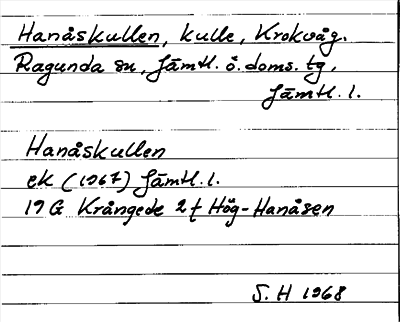 Hanåskullen, kulle, Krokvåg.
Ragunda sn, Jämtl. ö. doms. tg,
Jämtl. l.
Hanåskullen
ek (1967) Jämtl. l.
19 G Krångede 2 f Hög-Hanåsen
S. H 1968